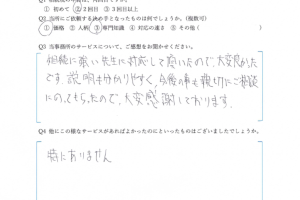 ① 初めて ②2回目 ③3回目以上
Q2 当所にご依頼する決め手となったものは何でしょうか。(複数可)
①価格 ②人柄 ③専門知識 ④対応の速さ ⑤その他( )
Q3 当事務所のサービスについて、ご感想をお聞かせください。
に対応して頂いたので、大変良かった
です。説明も分かりやすく、今後の事も親切にご相談
にのってもらったので、大変感謝しております。
Q4 他にこの様なサービスがあればよかったのにといったものはございましたでしょうか。
特にありません